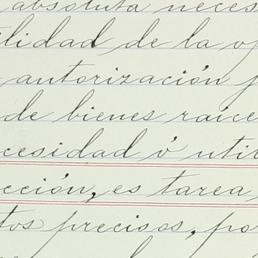 absoluta neces
ilidad de la op
autorización p
de bienes raíce
cesidad ó utili
cción, es tarea
tos precisos, po